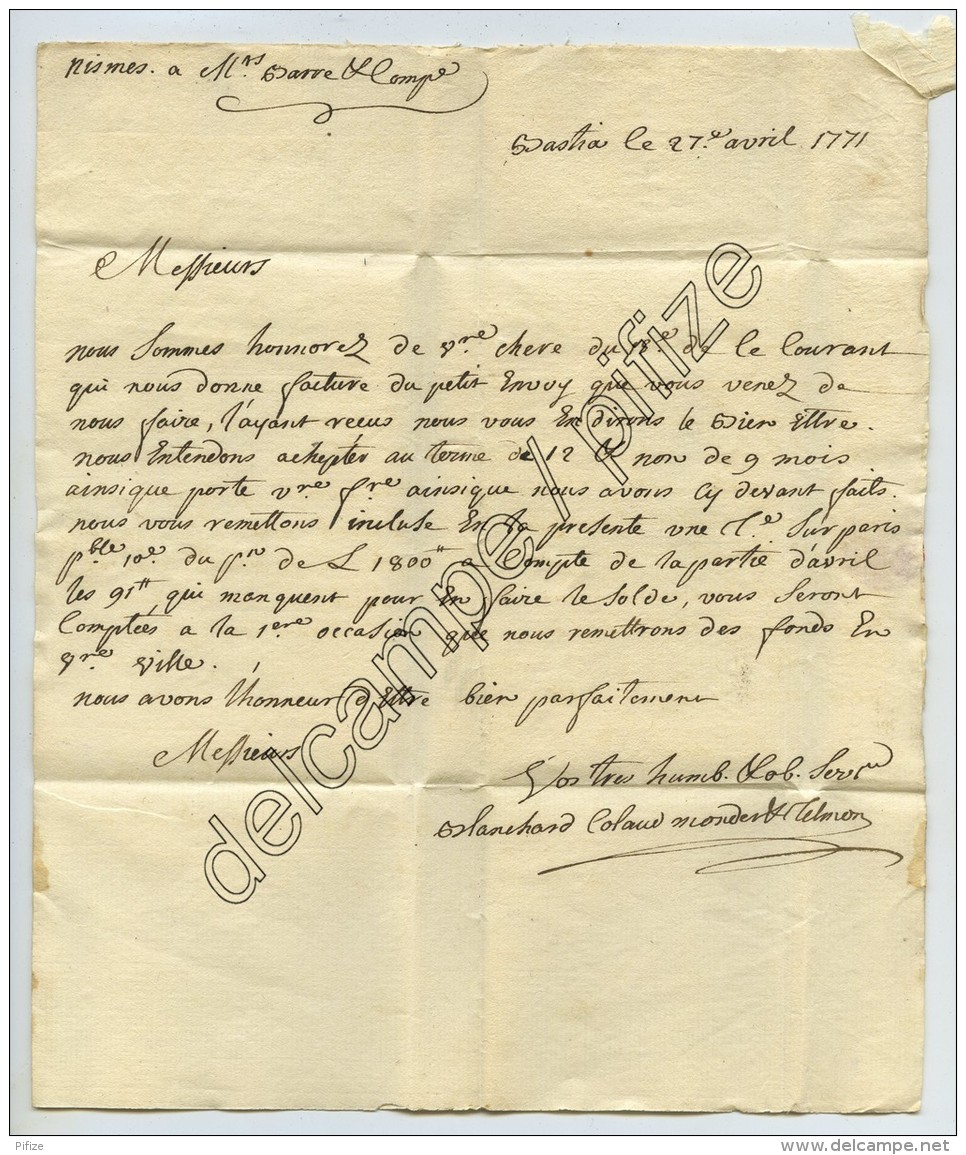 nismes. a M.rs Barre & Compe
Bastia le 27.e avril 1771
Messieurs
nous sommes honnorez de v.re chere du 18.e de le Courant
qui nous donne facture du petit Envoy que vous venez de
nous faire, l'ayant reçus nous vous En dirons le Bien Ettre.
nous Entendons achepter au terme de 12 & non de 9 mois
ainsique porte v.re f.re ainsique nous avons Cy devant faits.
nous vous remettons incluse En la presente une L.e sur paris
p.ble 10.e du p.n de L 1800" a Compte de la partie d'avril
les 9tt qui manquent pour En faire le solde, vous seront
Comptées a la 1.ere occasion que nous remettrons des fonds En
v.re ville.
nous avons l'honneur d'Ettre bien parfaitement
Messieurs
Vos tres humb. & ob. Ser.
Blanchard Colaud monder & Telmon
delcampe / pifize
Pifize
www.delcampe.net